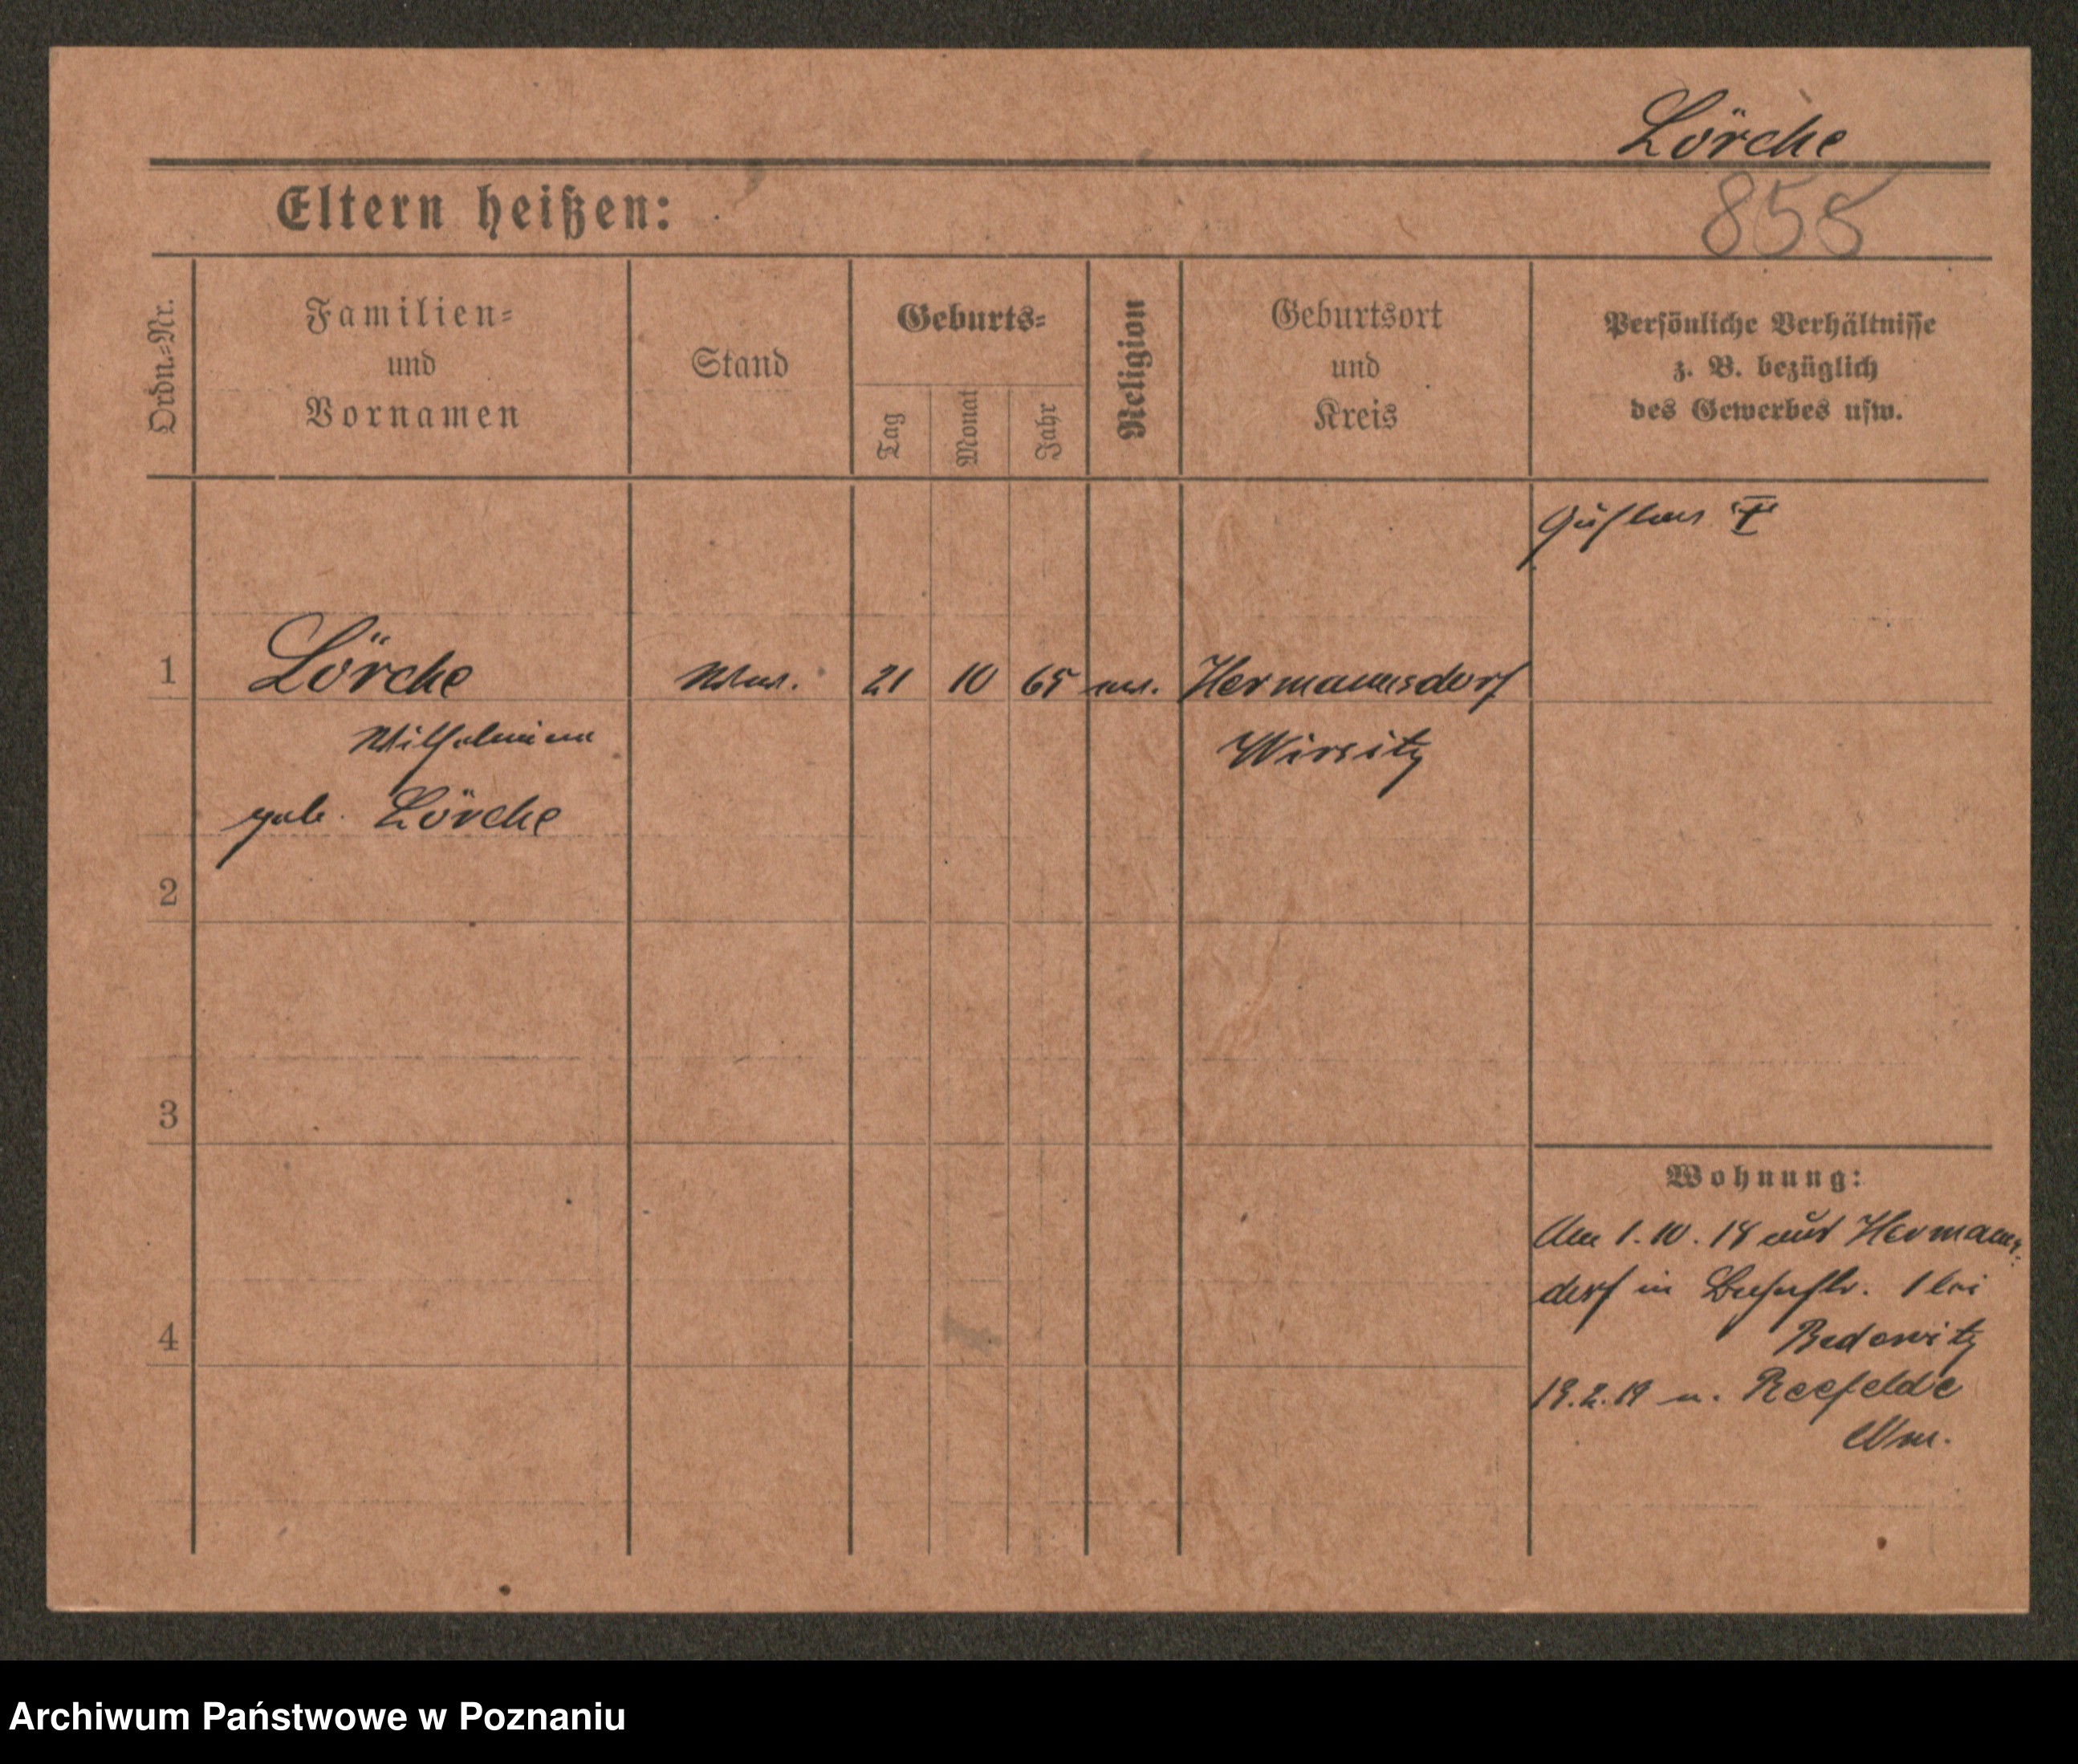 Lörche
Eltern heißen:
855
Ordn.-Nr.
Familien-
und
Vornamen
Stand
Geburts-
Tag
Monat
Jahr
Religion
Geburtsort
und
Kreis
Persönliche Verhältnisse
z. B. bezüglich
des Gewerbes usw.
1
Lörche
Ww.
21
10
65
ev.
Hermannsdorf
Wilhelmine
Wirsitz
geb. Lörche
2
3
4
Wohnung:
Am 1.10.18 aus Hermanns-
dorf in 1 bei
19.2.19 n. Seefelde
Archiwum Państwowe w Poznaniu